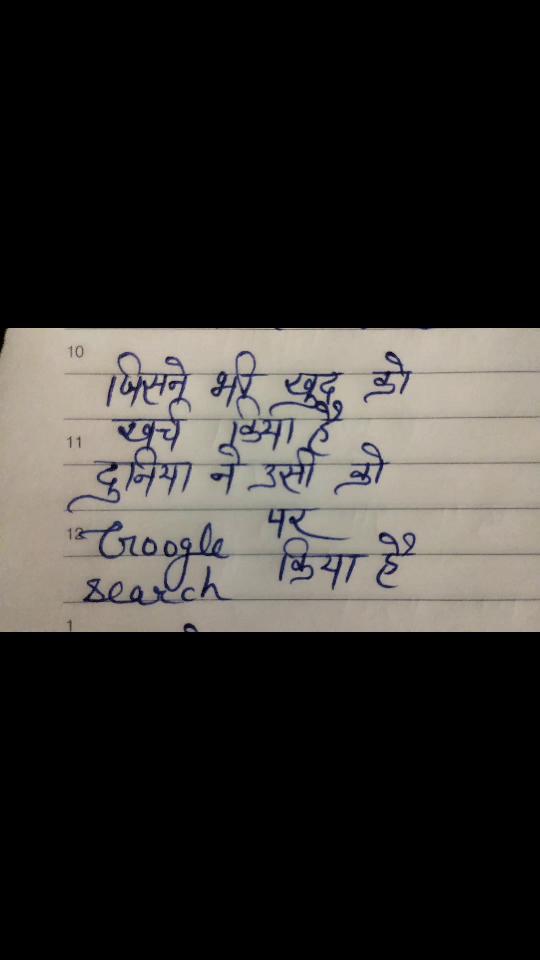 10
जिसने भी खुद को
11
खर्च किया है
दुनिया ने उसी को
12
Google पर
search किया है
1